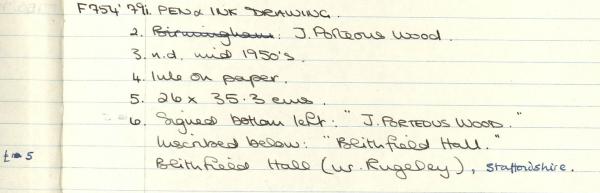 F754'79 1. PEN & INK DRAWING.
2. Birmingham. J. Porteous Wood.
3. n.d. mid 1950's.
4. Ink on paper.
5. 26 x 35.3 cms.
6. Signed bottom left: "J. PORTEOUS WOOD."
Inscribed below: "Blithfield Hall."
Blithfield Hall (nr. Rugeley), Staffordshire.